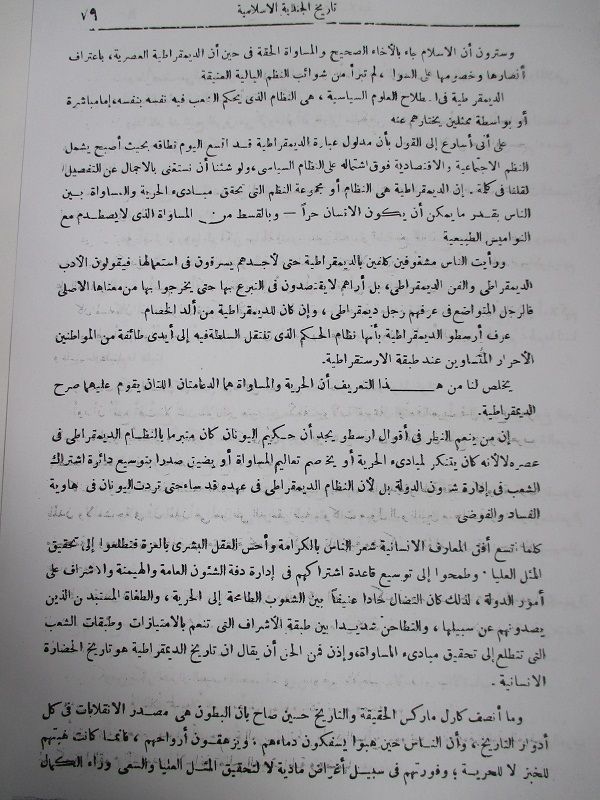 تاريخ الجندية الاسلامية ٧٩
وسترون أن الاسلام جاء بالأخاء الصحيح والمساواة الحقة فى حين أن الديمقراطية العصرية، باعتراف
أنصارها وخصومها على السواء، لم تبرأ من شوائب النظم البالية العتيقة
الديمقراطية فى اصطلاح العلوم السياسية، هى النظام الذى يحكم الشعب فيه نفسه بنفسه، إما مباشرة
أو بواسطة ممثلين يختارهم عنه
على أنى أسارع إلى القول بأن مدلول عبارة الديمقراطية قد اتسع اليوم نطاقه بحيث أصبح يشمل
النظم الاجتماعية والاقتصادية فوق اشتماله على النظام السياسى، ولو شئنا أن نستغنى بالاجمال عن التفصيل
لقلنا فى كلمة. إن الديمقراطية هى النظام أو مجموعة النظم التى تحقق مبادىء الحرية والمساواة بين
الناس بقدر ما يمكن أن يكون الانسان حراً — وبالقسط من المساواة الذى لا يصطدم مع
النواميس الطبيعية
ورأيت الناس مشغوفين كلفين بالديمقراطية حتى لأجدهم يسرفون فى استعمالها فيقولون الأدب
الديمقراطى والفن الديمقراطى، بل أراهم لا يقتصدون فى التبرع بها حتى يخرجوا بها من معناها الأصلى
فالرجل المتواضع فى عرفهم رجل ديمقراطى، وإن كان للديمقراطية من ألد الخصام.
عرف أرسطو الديمقراطية بأنها نظام الحكم الذى تنتقل السلطة فيه إلى أيدى طائفة من المواطنين
الأحرار المتساوين عند طبقة الارستقراطية.
يخلص لنا من هــذا التعريف أن الحرية والمساواة هما الدعامتان اللتان يقوم عليهما صرح
الديمقراطية.
إن من ينعم النظر فى أقوال ارسطو يجد أن حكيم اليونان كان متبرما بالنظام الديمقراطى فى
عصره لا لأنه كان يتنكر لمبادىء الحرية أو يخاصم تعاليم المساواة أو يضيق صدرا بتوسيع دائرة اشتراك
الشعب فى إدارة شئون الدولة بل لأن النظام الديمقراطى فى عهده قد ساء حتى تردت اليونان فى هاوية
الفساد والفوضى
كلما تسع أفق المعارف الانسانية شعر الناس بالكرامة وأحس العقل البشرى بالعزة فتطلعوا إلى تحقيق
المثل العليا. وطمحوا إلى توسيع قاعدة اشتراكهم فى إدارة دفة الشئون العامة والهيمنة والاشراف على
أمور الدولة، لذلك كان النضال حادا عنيفاً بين الشعوب الطامحة إلى الحرية، والطغاة المستبدين الذين
يصدونهم عن سبيلها، والتطاحن شديدا بين طبقة الأشراف التى تنعم بالامتيازات وطبقات الشعب
التى تتطلع إلى تحقيق مبادىء المساواة، وإذن فمن الحق أن يقال ان تاريخ الديمقراطية هو تاريخ الحضارة
الانسانية.
وما أنصف كارل ماركس الحقيقة والتاريخ حين صاح بان البطون هى مصدر الانقلابات فى كل
أدوار التاريخ، وأن الناس حين هبوا يسفكون دماءهم، ويزهقون أرواحهم، فانما كانت هبتهم
للخبز لا للحرية؛ وفورتهم فى سبيل أغراض مادية لا لتحقيق المثل العليا والسعى وراء الكمال